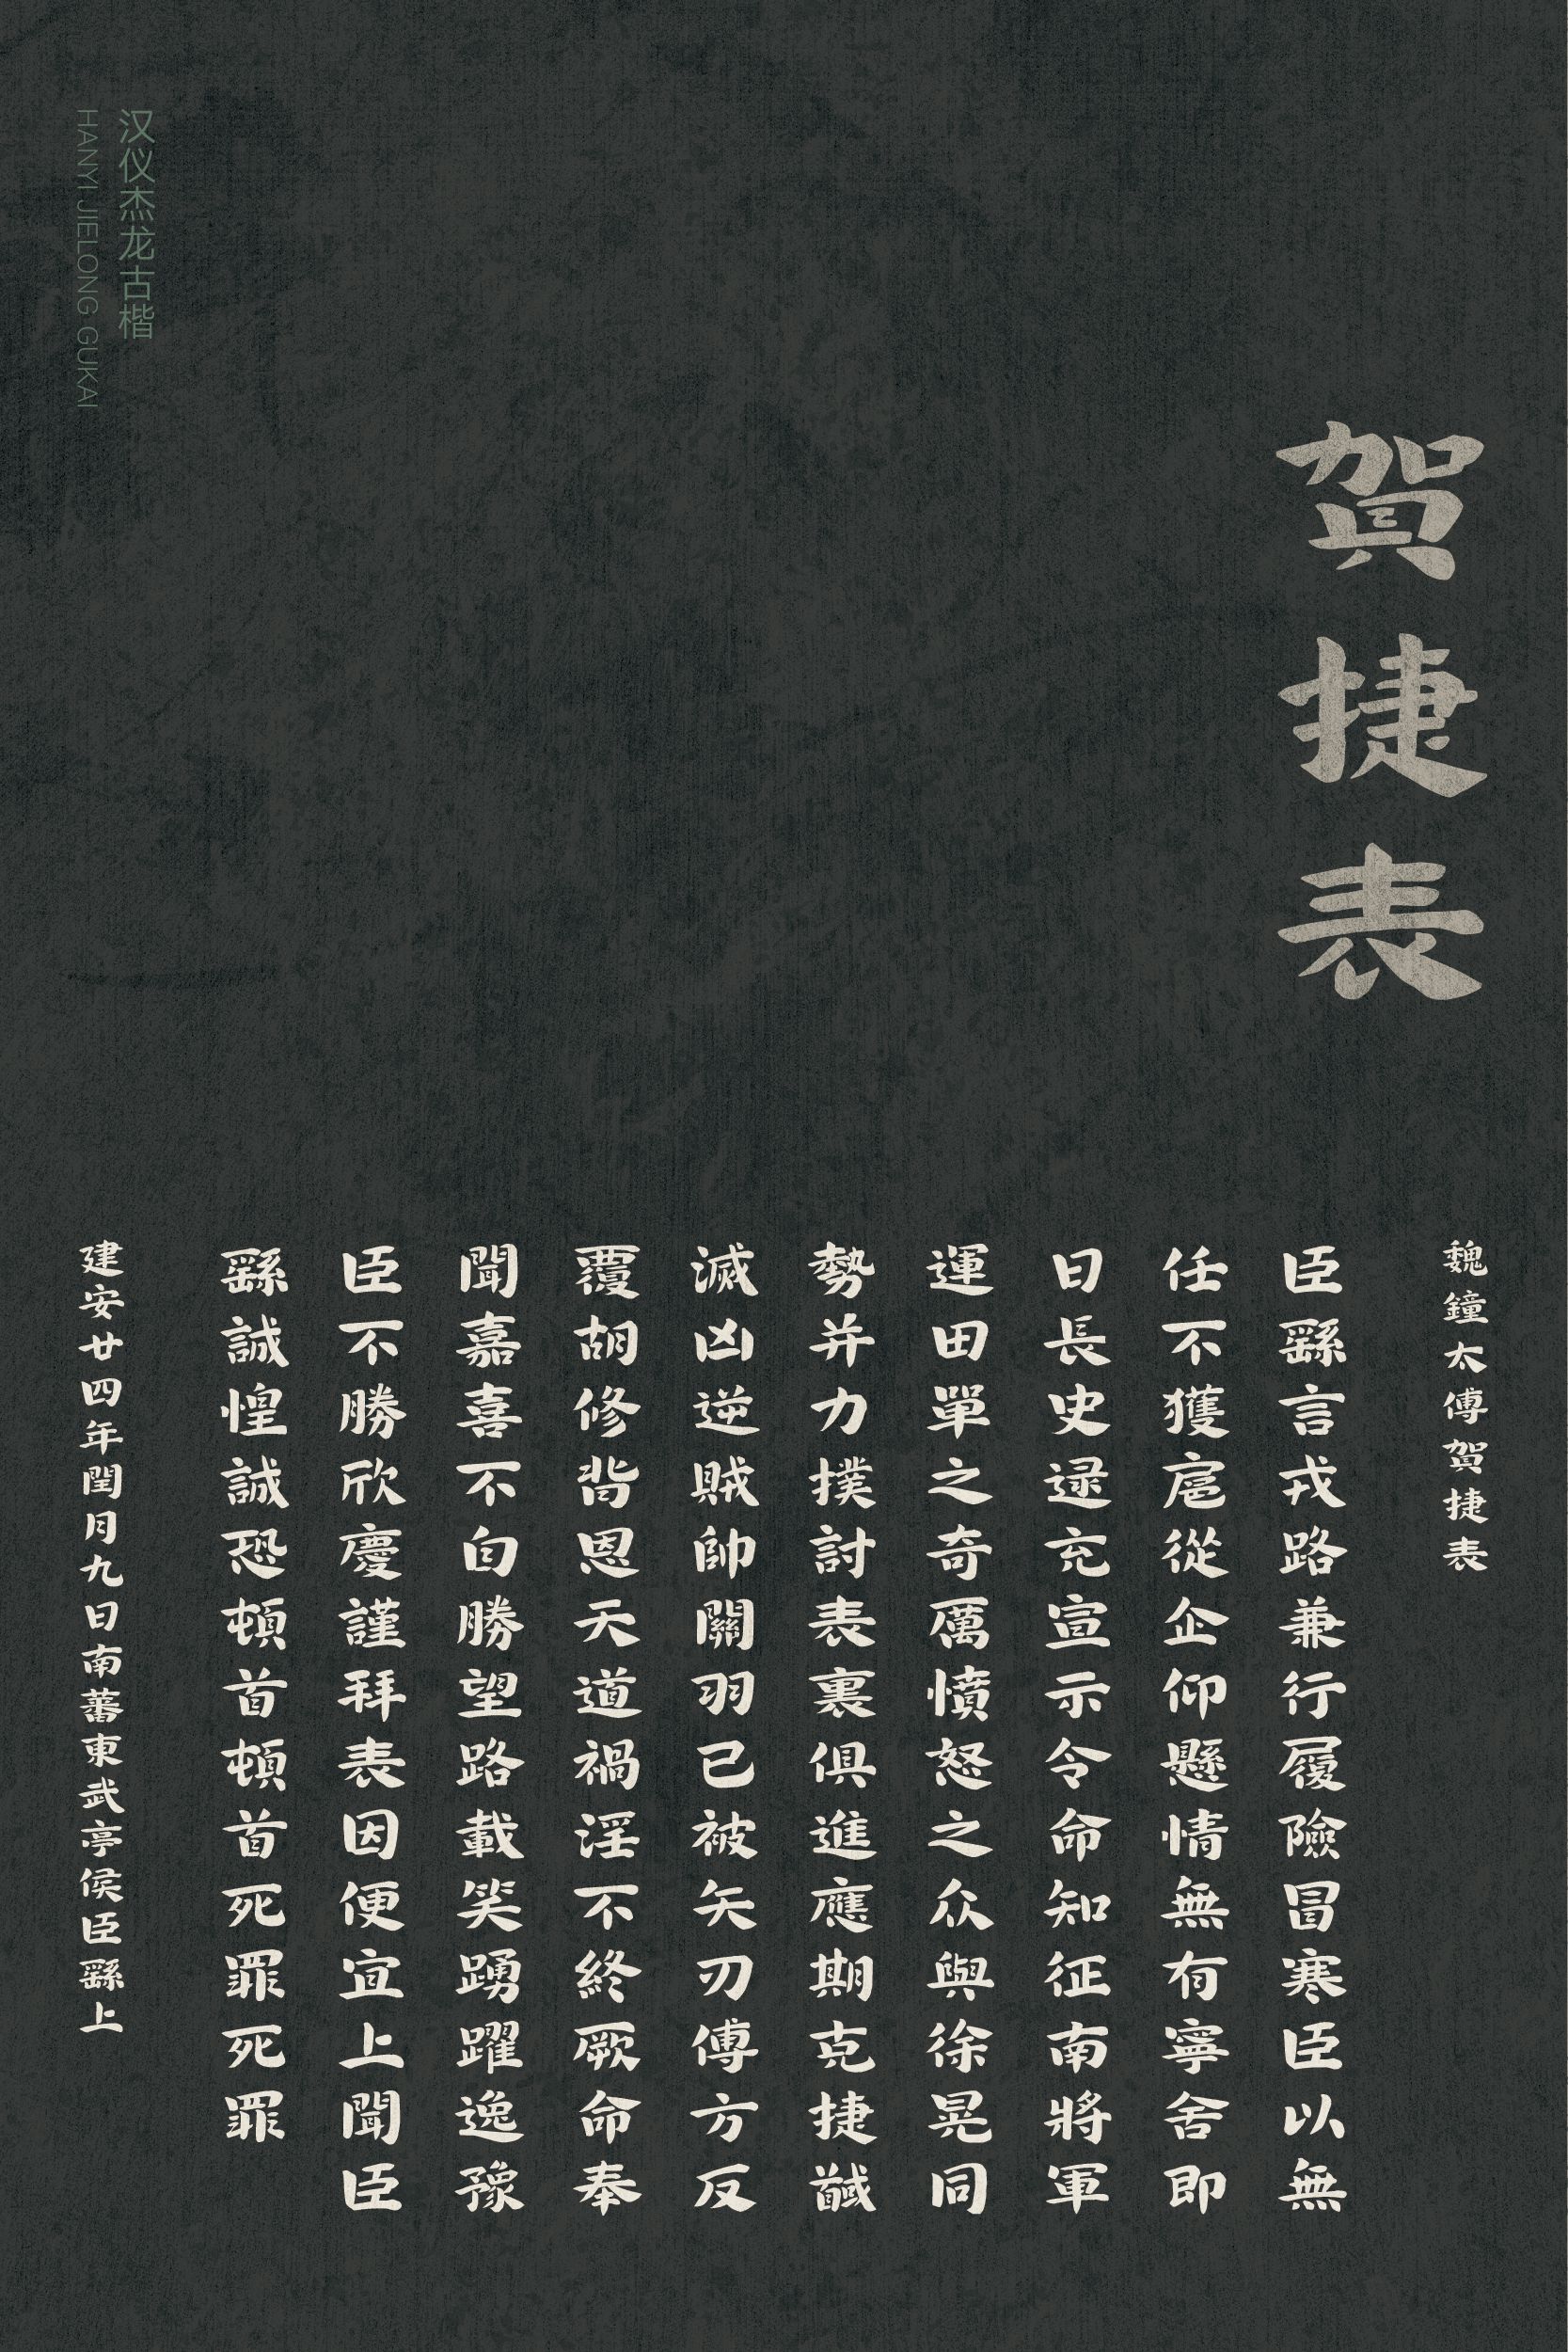 賀捷表
魏鐘太傅賀捷表
臣繇言戎路兼行履險冒寒臣以無
任不獲扈從企仰懸情無有寧舍即
日長史逯充宣示令命知征南將軍
運田單之奇厲憤怒之众與徐晃同
勢并力撲討表裏俱進應期克捷馘
滅凶逆賊帥關羽已被矢刃傅方反
覆胡修背恩天道禍淫不終厥命奉
聞嘉喜不自勝望路載笑踴躍逸豫
臣不勝欣慶謹拜表因便宜上聞臣
繇誠惶誠恐頓首頓首死罪死罪
建安廿四年閏月九日南蕃東武亭侯臣繇上
汉仪杰龙古楷
HANYI JIELONG GUKAI